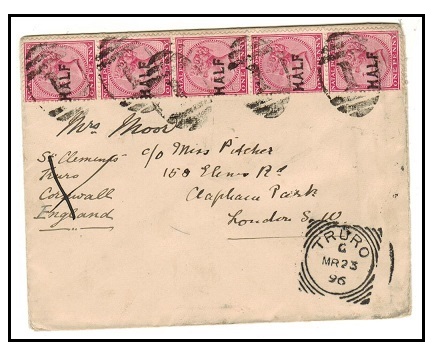 HALF
ONE PENNY
HALF
HALF
HALF
HALF
ONE PENNY
Mrs Moor
c/o Miss Pitcher
St Clements
Truro
Cornwall
England
158 Elms Rd
Clapham Park
London S.W.
TRURO
MR 23
96